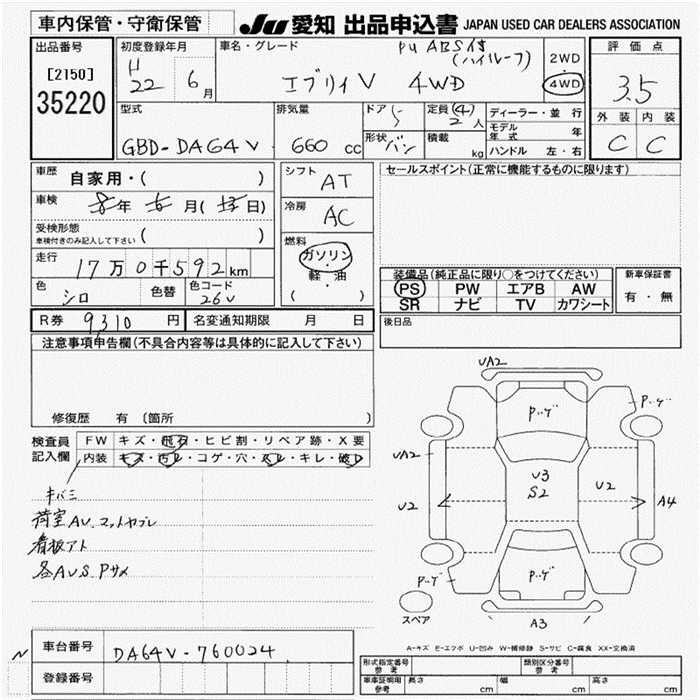 車内保管・守衛保管
JU 愛知 出品申込書 JAPAN USED CAR DEALERS ASSOCIATION
出品番号
[2150]
35220
初度登録年月
H
22 6月
車名・グレード
PU ABS付
(ハイルーフ)
エブリィV 4WD
2WD
4WD
評価点
3.5
外装 内装
C C
型式
GBD-DA64V
排気量
660 cc
ドア
5
形状
バン
定員 (4)
2人
積載
kg
ディーラー・並行
モデル年式 年
ハンドル 左・右
車歴
自家用・( )
車検
年 月( 日)
受検形態
車検付きのみ記入して下さい ( )
走行
17万0千592km
色
シロ
色替
色コード
26V
シフト
AT
冷房
AC
燃料
ガソリン
・
軽・油
( )
セールスポイント(正常に機能するものに限ります)
装備品(純正品に限り○をつけてください)
PS PW エアB AW
SR ナビ TV カワシート
新車保証書
有・無
後日品
R券 9310 円
名変通知期限 月 日
注意事項申告欄(不具合内容等は具体的に記入して下さい)
修復歴 有 〔箇所 〕
検査員
記入欄
FW キズ・飛石・ヒビ割・リペア跡・X要
内装 キズ・汚れ・コゲ・穴・スレ・キレ・破レ
キバミ
荷室AU.マットヤブレ
看板アト
各AUS.Pサメ
UA2
Pハゲ
Pハゲ
UA2
U3
S2
U2
U2
A4
Pハゲ
Pハゲ
A3
スペア
A-キズ E-エクボ U-凹み W-補修跡 S-サビ C-腐食 XX-交換済
N
車台番号
DA64V-760024
登録番号
形式指定番号
参考
類別区分番号
参考
車庫証明用
参考
長さ cm 幅 cm 高さ cm